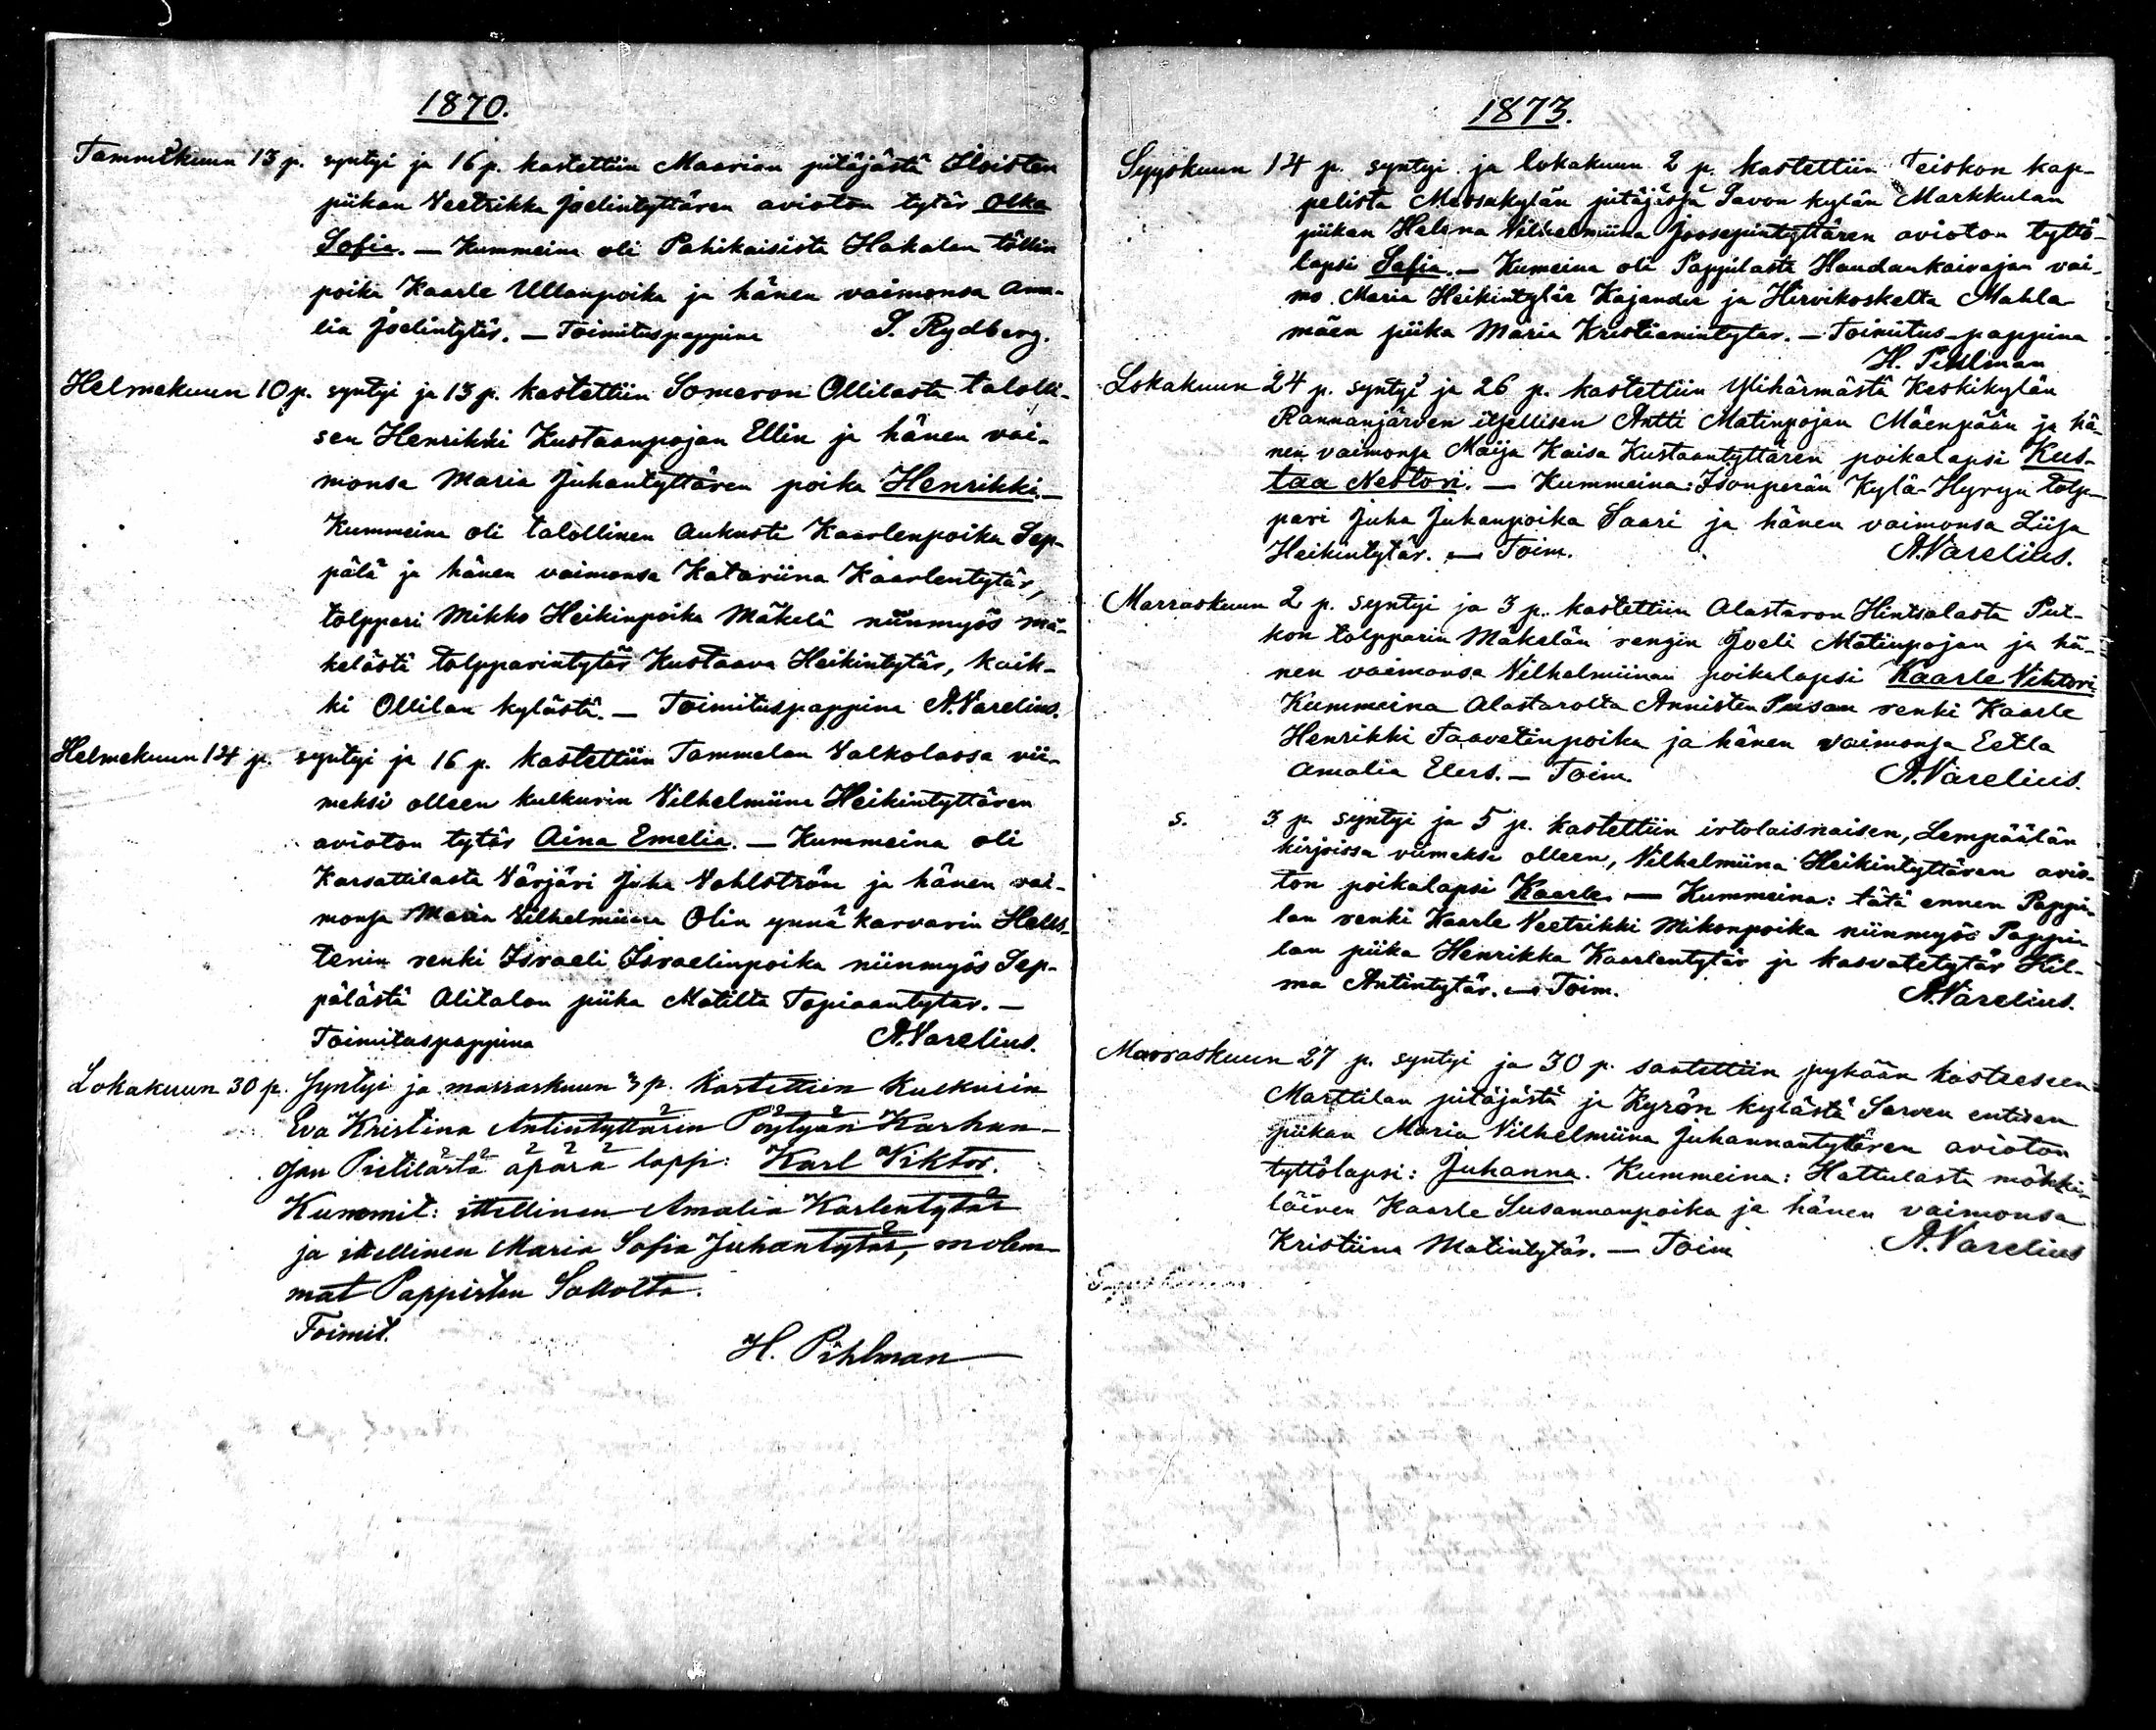 1870.
Tammikuun 13 p. syntyi ja 16 p. kastettiin Maarian pitäjästä Iloisten
piikan Veetrikka Joelintyttären avioton tytär Olka
Sofia. — Kummeina oli Pahikaisista Hakalan töllin
poika Kaarle Ullanpoika ja hänen vaimonsa Ama-
lia Joelintytär. — Toimituspappina S. Rydberg.
Helmekuun 10 p. syntyi ja 13 p. kastettiin Someron Ollilasta talolli-
sen Henrikki Kustaanpojan Ellin ja hänen vai-
monsa Maria Juhantyttären poika Henrikki. —
Kummeina oli talollinen Aukusti Kaarlenpoika Sep-
pälä ja hänen vaimonsa Katariina Kaarlentytär,
tolppari Mikko Heikinpoika Mäkelä niinmyös mä-
kelästä tolpparintytär Kustaava Heikintytär, kaik-
ki Ollilan kylästä. — Toimituspappina A. Varelius.
Helmekuun 14 p. syntyi ja 16 p. kastettiin Tammelan Valkolassa vii-
meksi olleen kulkurin Vilhelmiina Heikintyttären
avioton tytär Aina Emelia. — Kummeina oli
Karsattilasta Värjäri Juha Vahlström ja hänen vai-
monsa Maria Vilhelmiina Olin ynnä karvarin Hells-
tenin renki Israeli Israelinpoika niinmyös Sep-
pälästä Alitalon piika Matilta Tapiaantytar. —
Toimituspappina A. Varelius.
Lokakuun 30 p. Syntyi ja marraskuun 3 p. kastettiin kulkurin
Eva Kristina Antintyttärin Pöytyän Karhun-
ojan Pietilästä äpärä lapsi: Karl Viktor.
Kummit: itsellinen Amalia Karlentytär
ja itsellinen Maria Sofia Juhantytär, molem-
mat Pappisten Sallolta.
Toimit.
H. Pihlman
1873.
Syyskuun 14 p. syntyi ja lokakuun 2 p. kastettiin Teiskon kap-
pelista Messukylän pitäjässä Pavon kylän Markkulan
piikan Helena Vilhelmiina Joosepintyttären avioton tyttö-
lapsi Sofia. — Kumeina oli Pappilasta Haudankaivajan vai-
mo Maria Heikintytär Kajander ja Hirvikoskelta Mahla-
mäen piika Maria Kristianintytar. — Toimitus-pappina
H. Pihlman
Lokakuun 24 p. syntyi ja 26 p. kastettiin Ylihärmästä Keskikylän
Rannanjärven itsellisen Antti Matinpojan Mäenpään ja hä-
nen vaimonsa Maija Kaisa Kustaantyttären poikalapsi Kus-
taa Nestori. — Kummeina: Isonperän Kylä-Hyryn tolp-
pari Juha Juhanpoika Saari ja hänen vaimonsa Liisa
Heikintytär. — Toim. A. Varelius.
Marraskuun 2 p. syntyi ja 3 p. kastettiin Alastaron Hintsalasta Put-
kon tolpparin Mäkelän rengin Joeli Matinpojan ja hä-
nen vaimonsa Vilhelmiinan poikalapsi Kaarle Vihtori.
Kummeina Alastarolta Annisten Pusan renki Kaarle
Henrikki Taavetinpoika ja hänen vaimonsa Eetla
Amalia Elers. — Toim. A. Varelius.
s. 3 p. syntyi ja 5 p. kastettiin irtolaisnaisen, Lempäälän
kirjoissa viimeksi olleen, Vilhelmiina Heikintyttären avio-
ton poikalapsi Kaarle. — Kummeina: tätä ennen Pappi-
lan renki Kaarle Veetrikki Mikonpoika niinmyös Pappi-
lan piika Henrikka Kaarlentytär ja kasvatetytär Hil-
ma Antintytär. — Toim. A. Varelius.
Marraskuun 27 p. syntyi ja 30 p. saatettiin pyhään kasteeseen
Marttilan pitäjästä ja Kyrön kylästä Sarven entisen
piikan Maria Vilhelmiina Juhannantytären avioton
tyttölapsi: Juhanna. Kummeina: Hattulasta mökki-
läinen Kaarle Susannanpoika ja hänen vaimonsa
Kristiina Matintytär. — Toim A. Varelius